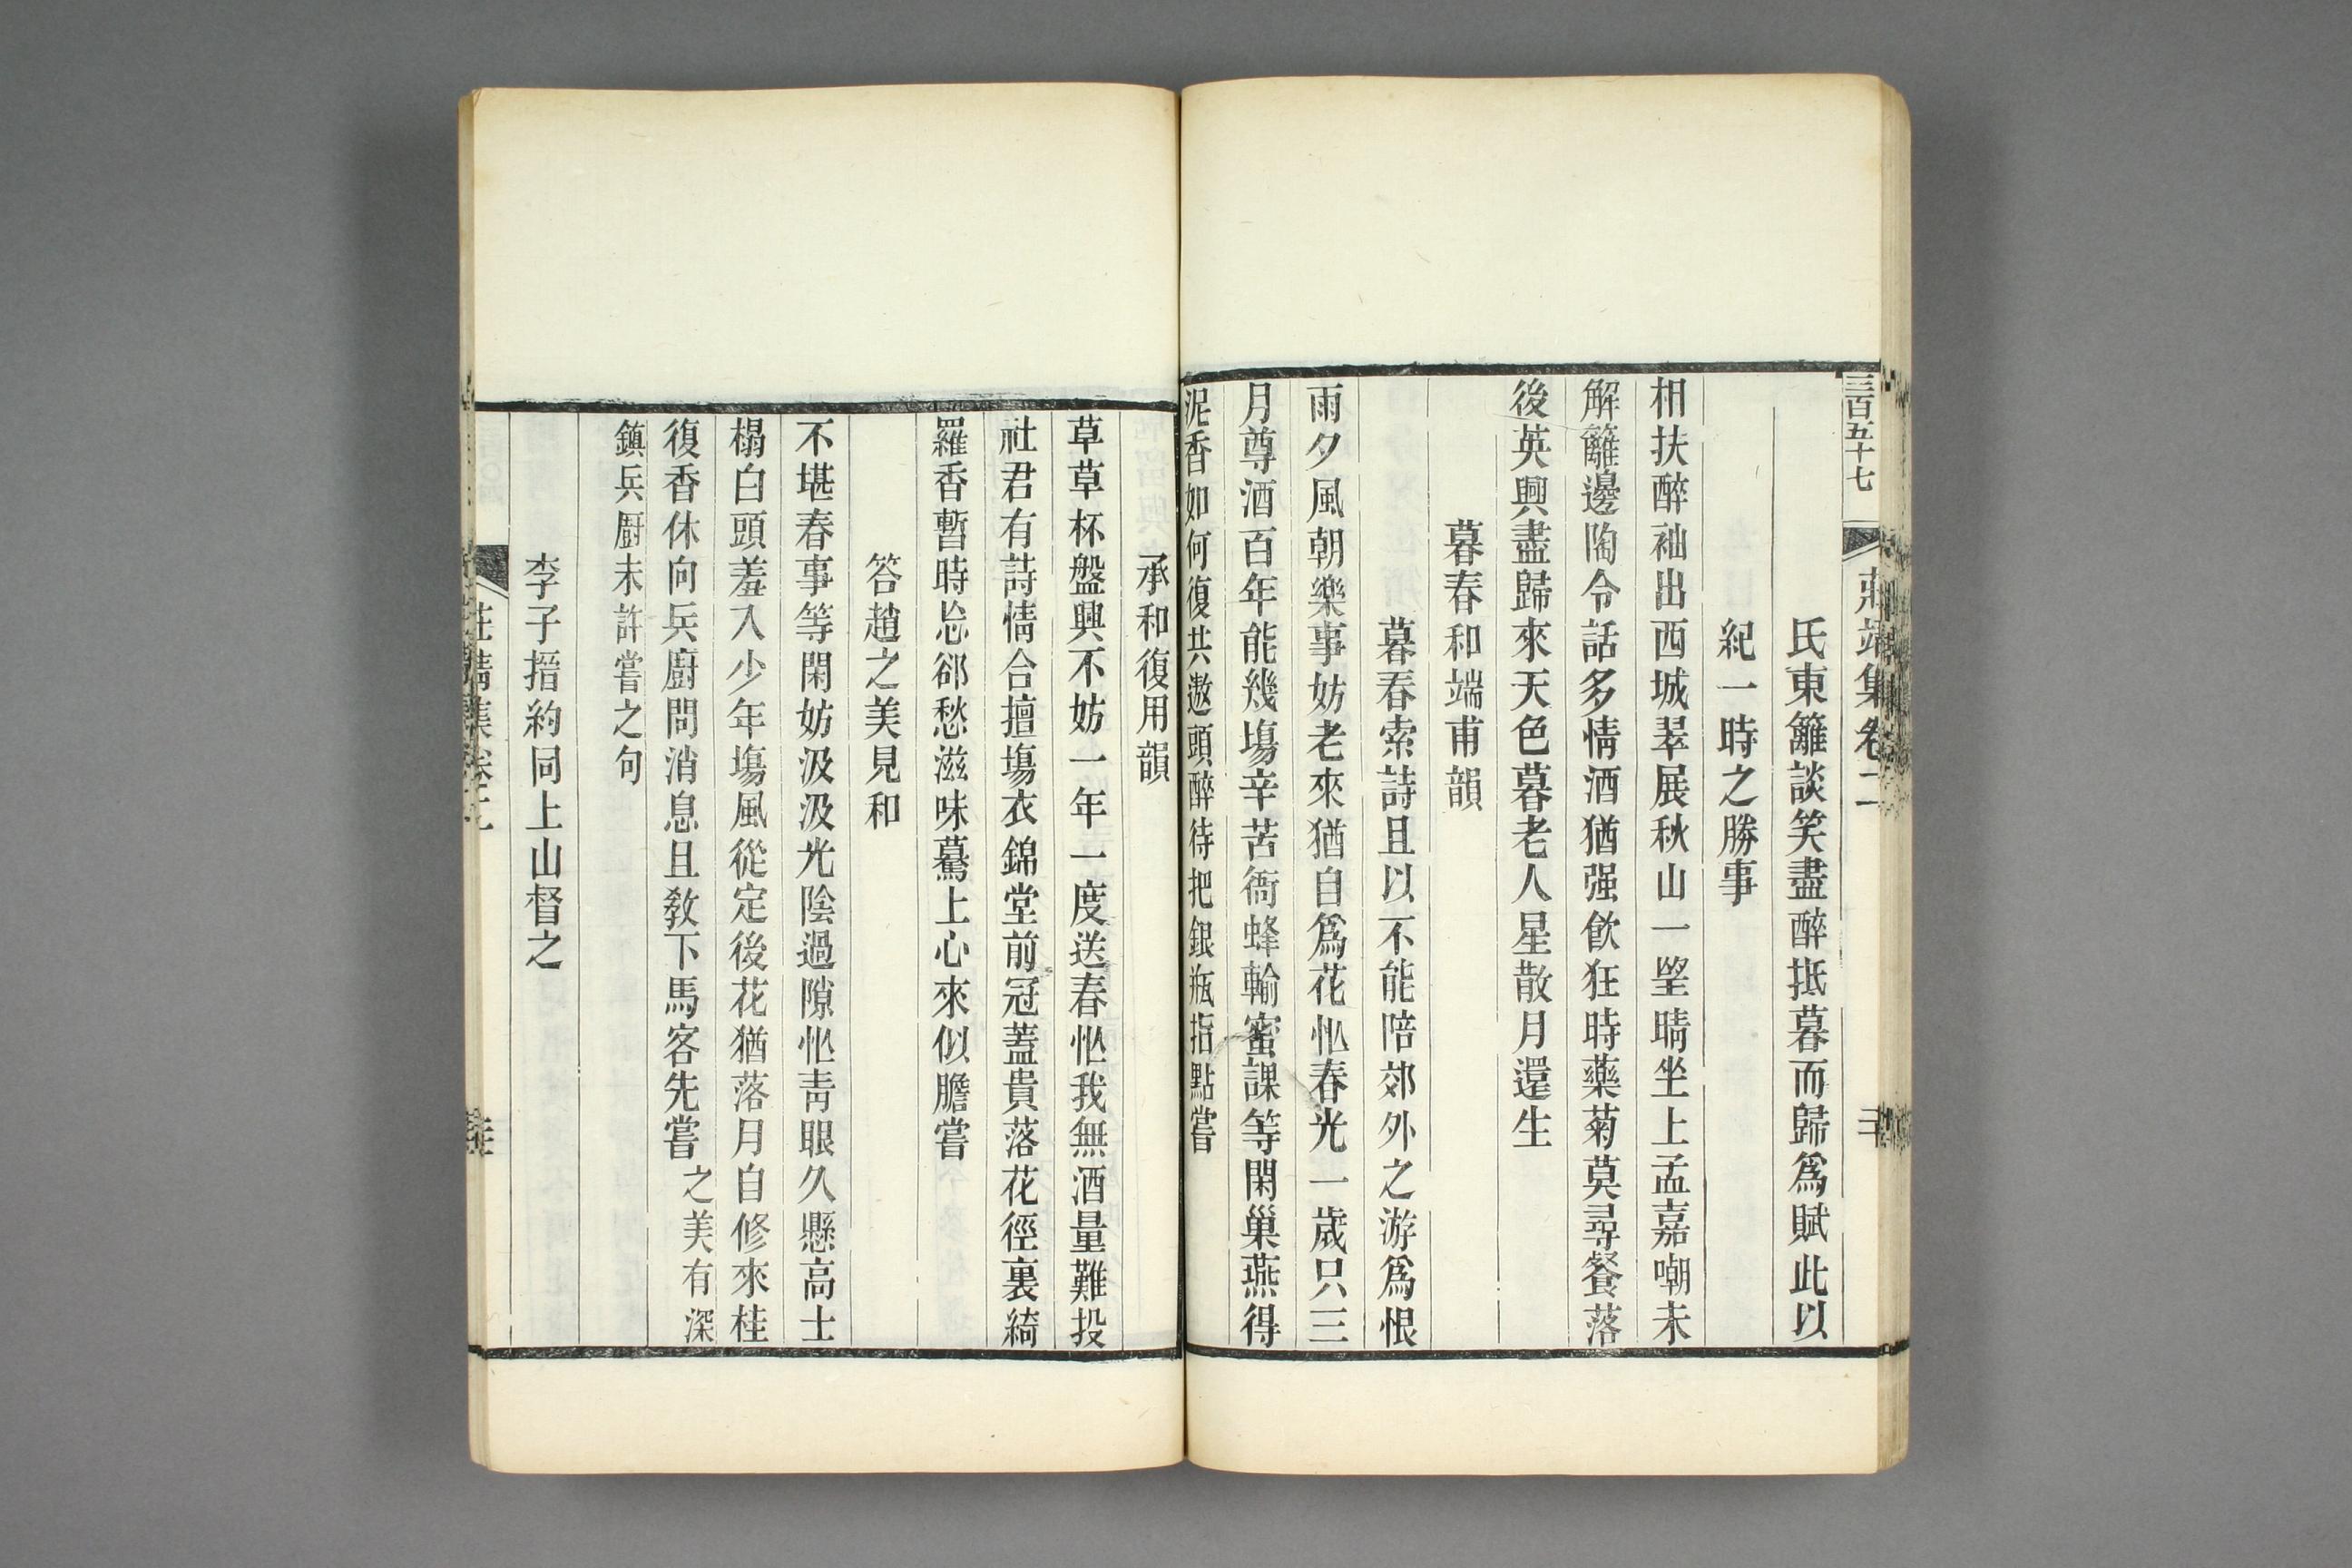 三百五十七
莊靖集卷二
氏東籬談笑盡醉抵暮而歸爲賦此以
紀一時之勝事
相扶醉袖出西城翠展秋山一朢晴坐上孟嘉嘲未
解籬邊陶令話多情酒猶强飮狂時藥菊莫尋餐落
後英興盡歸來天色暮老人星散月還生
暮春和端甫韻
暮春索詩且以不能陪郊外之游爲恨
雨夕風朝樂事妨老來猶自爲花忙春光一歲只三
月尊酒百年能幾塲辛苦衙蜂輸蜜課等閑巢燕得
泥香如何復共遨頭醉待把銀瓶指點嘗
承和復用韻
草草杯盤興不妨一年一度送春忙我無酒量難投
社君有詩情合擅塲衣錦堂前冠蓋貴落花徑裏綺
羅香暫時忘郤愁滋味驀上心來似膽嘗
答趙之美見和
不堪春事等閑妨汲汲光陰過隙忙靑眼久懸高士
榻白頭羞入少年塲風從定後花猶落月自修來桂
復香休向兵廚問消息且敎下馬客先嘗之美有深
鎮兵廚未許嘗之句
李子搢約同上山督之
莊靖集卷二